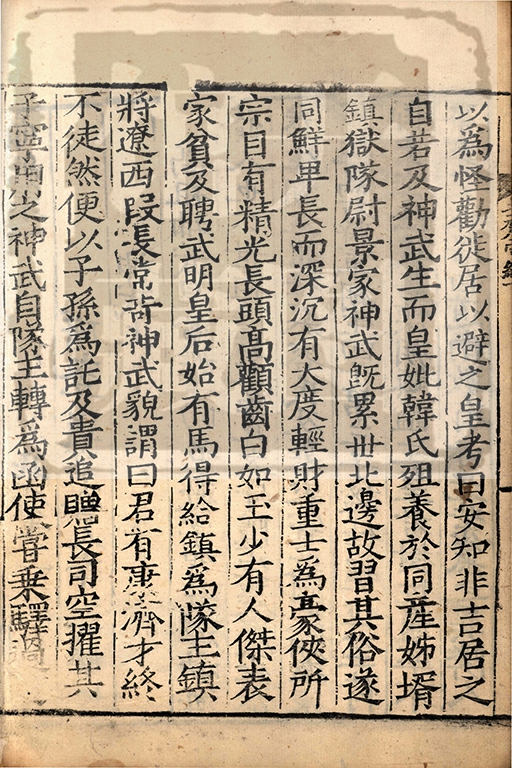 以爲怪勸徙居以避之皇考曰安知非吉居之
自若及神武生而皇妣韓氏殂養於同産姊壻
鎮獄隊尉景家神武旣累世北邊故習其俗遂
同鮮卑長而深沉有大度輕財重士爲豪俠所
宗目有精光長頭高顴齒白如玉少有人傑表
家貧及聘武明皇后始有馬得給鎮爲隊主鎮
將遼西段長常奇神武貌謂曰君有康濟才終
不徒然便以子孫爲託及貴追贈長司空擢其
子寧用之神武自隊主轉爲函使嘗乗驛過